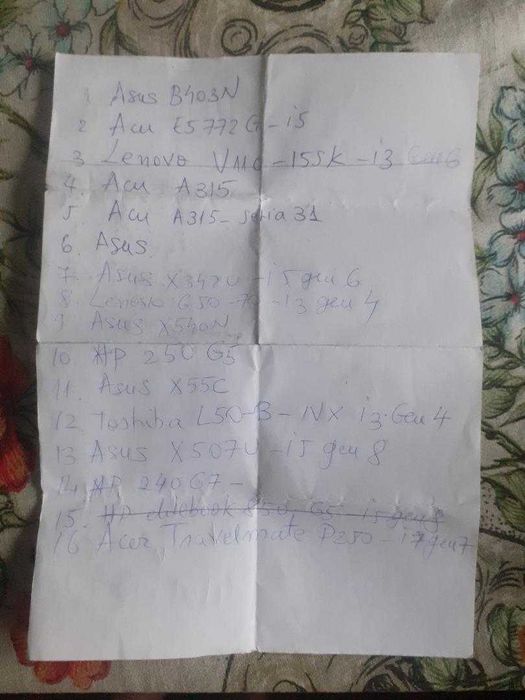 1 Asus B403N
2 Acer E5 772G-i5
3 Lenovo V110-15SK-i3 Gen 6
4. Acer A315
5 Acer A315-seria 31
6. Asus
7. Asus X342U-i5 gen 6
8. Lenovo G50-70-i3 gen 4
9 Asus X540N
10. HP 250 G5
11. Asus X55C
12 Toshiba L50-B-NX i3.Gen 4
13 Asus X507U-i5 gen 8
14. HP 240 G7-
15. HP elitebook 850, G5 i5 gen 8
16 Acer Travelmate P250-i7 gen 7